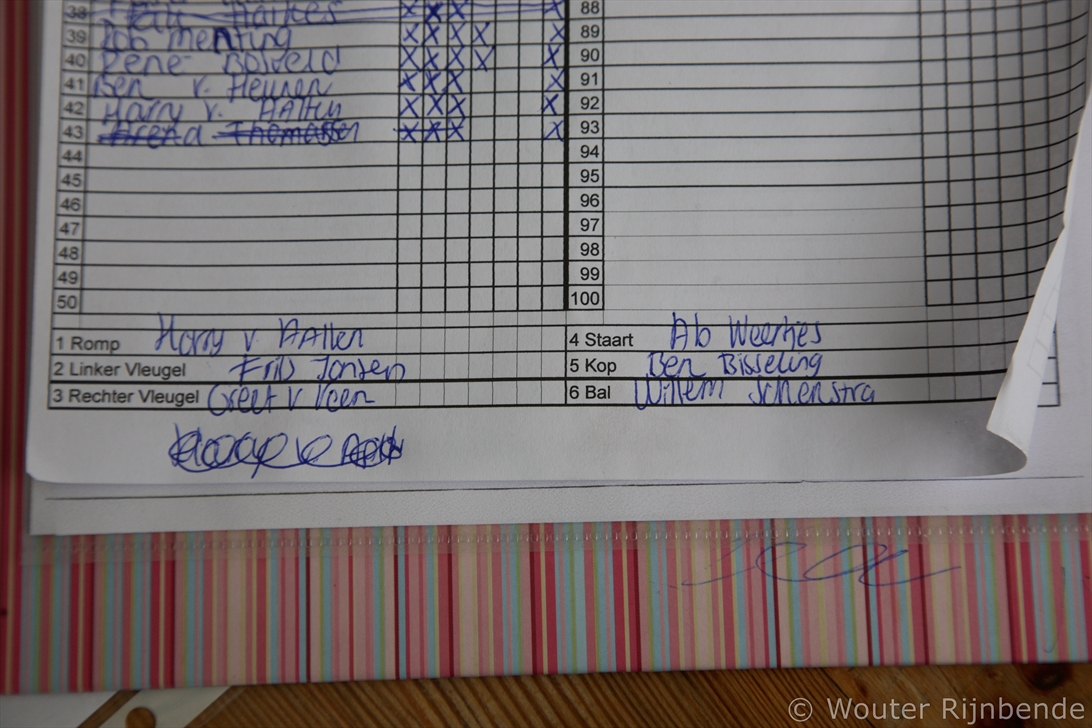 38 Haikes X X X X
39 Bob Menting X X X X X
40 Rene Bosveld X X X X X
41 Ben v. Heunen X X X X
42 Harry v. Aalten X X X X
43 Arend Thomassen X X X X
44
45
46
47
48
49
50
88
89
90
91
92
93
94
95
96
97
98
99
100
1 Romp Harry v Aalten
2 Linker Vleugel Frits Jansen
3 Rechter Vleugel Greet v Veen
4 Staart Ab Weertjes
5 Kop Ben Bisseling
6 Bal Willem Schenstra
© Wouter Rijnbende